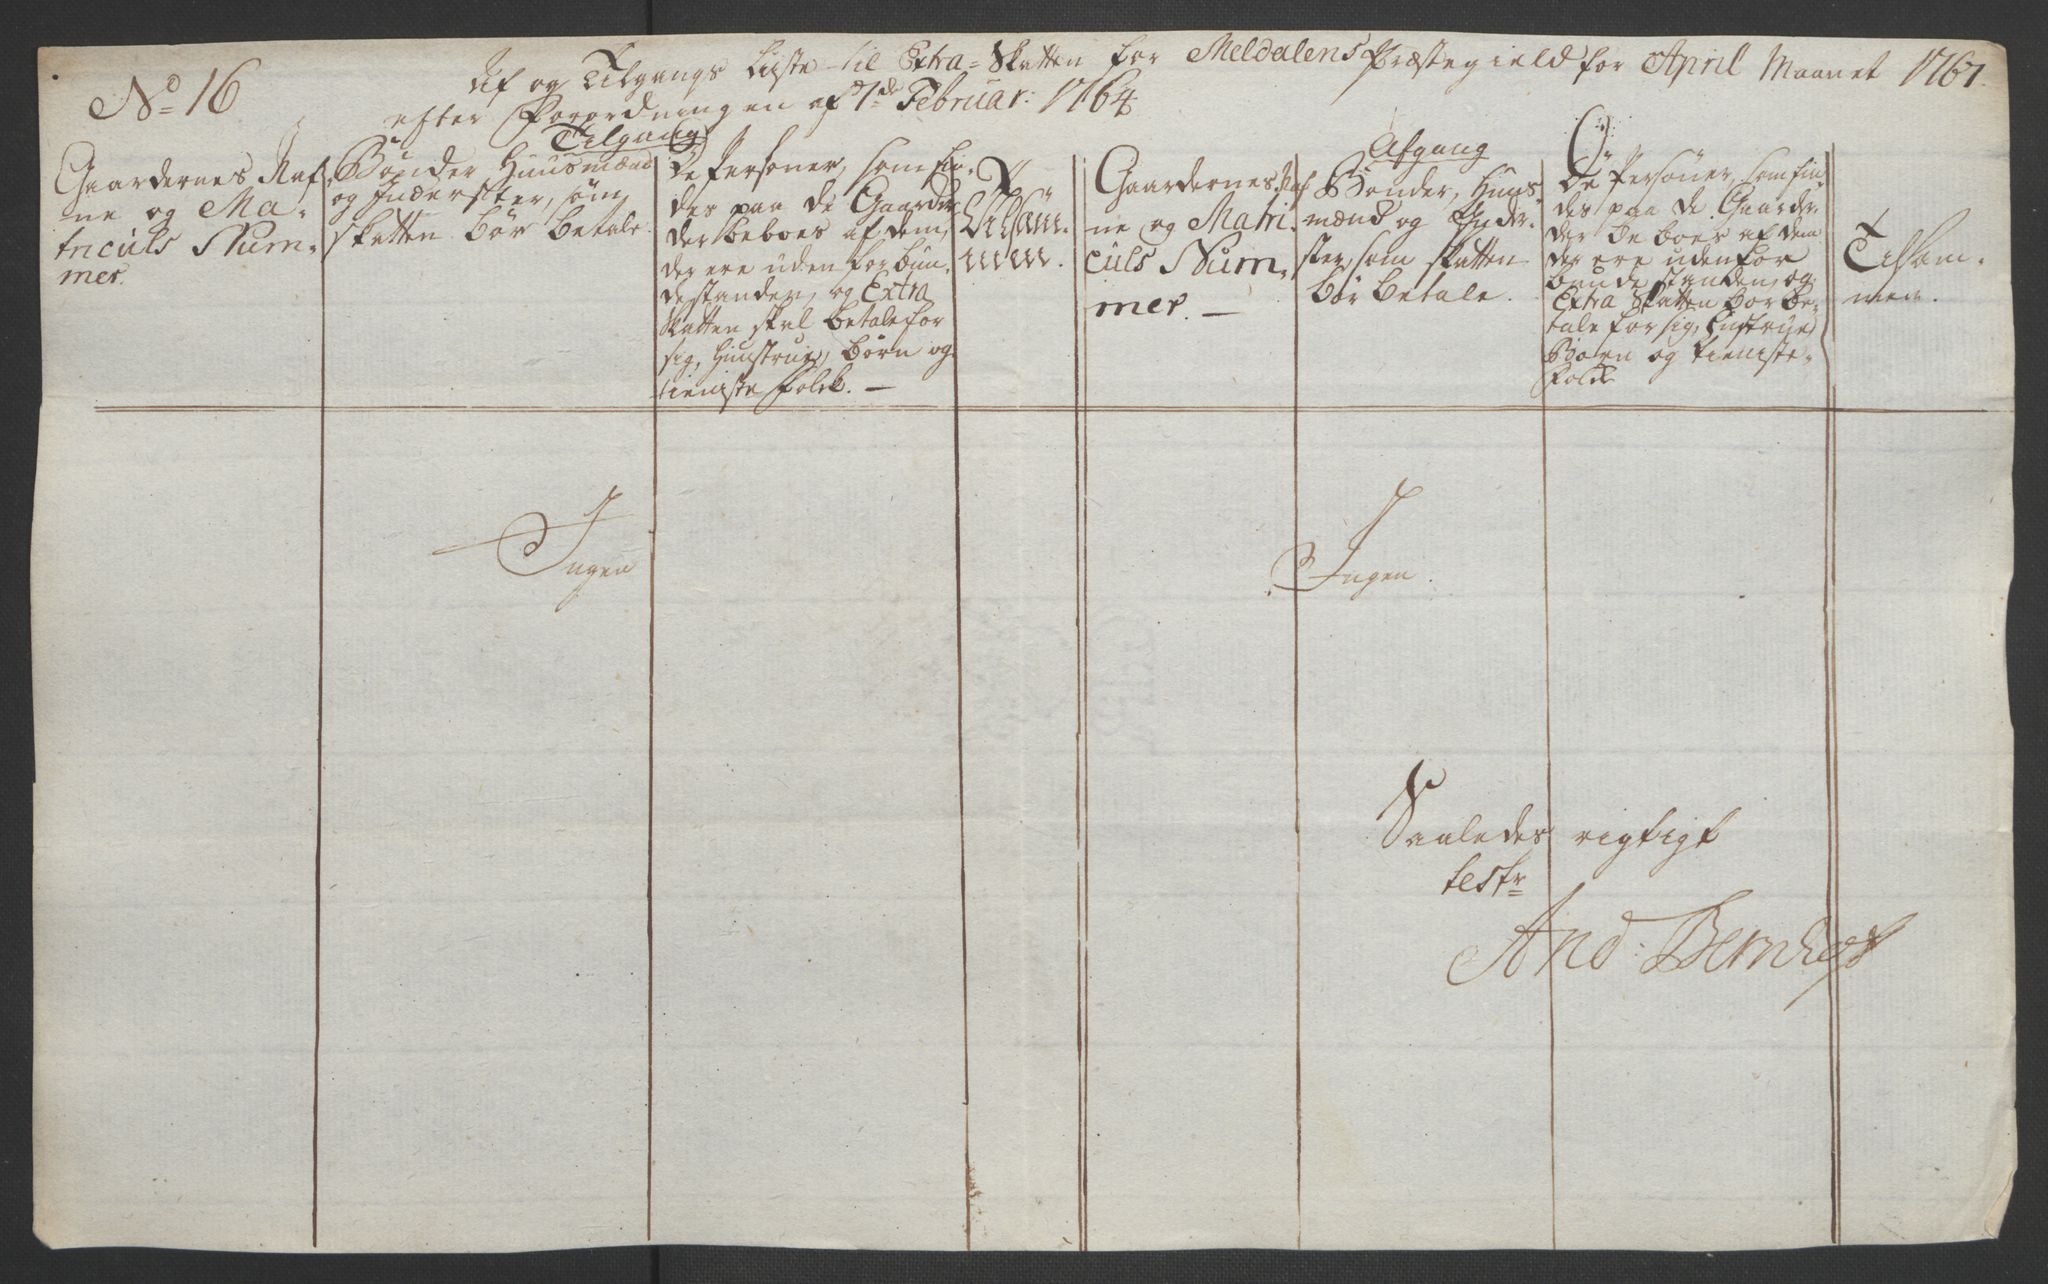 No 16
Af og Tilgangs Liste til Extra-Skatten for Meldalens Præstegield for April Maanet 1767.
efter Forordningen af 7de Februar: 1764
Tilgang
Gaardernes Naf-
ne og Ma-
triculs Num-
mer.
Bönder Huusmænd
og Inderster, som
skatten bör betale.
De Personer, som fin-
des paa de Gaarde
der beboes af dem,
der ere uden for bun-
destanden, og Extra
Skatten skal betale for
sig, Huustrue, börn og
tieniste folck. —
Tilsam-
men.
Afgang
Gaardernes Naf
ne og Matri-
culs Num-
mer. —
Bonder, Huus-
mænd og Inder-
ster, som skatten
bör betale.
De Personer, som fin-
des paa de Gaarde
der beboes af dem
der ere uden for
bunde standen, og
Extra Skatten bör be-
tale for sig, Hustrue
Börn og tieniste-
Folck
Tilsam-
men.
Ingen
Ingen.
Saaledes rigtigt
test
And: Bernhoft